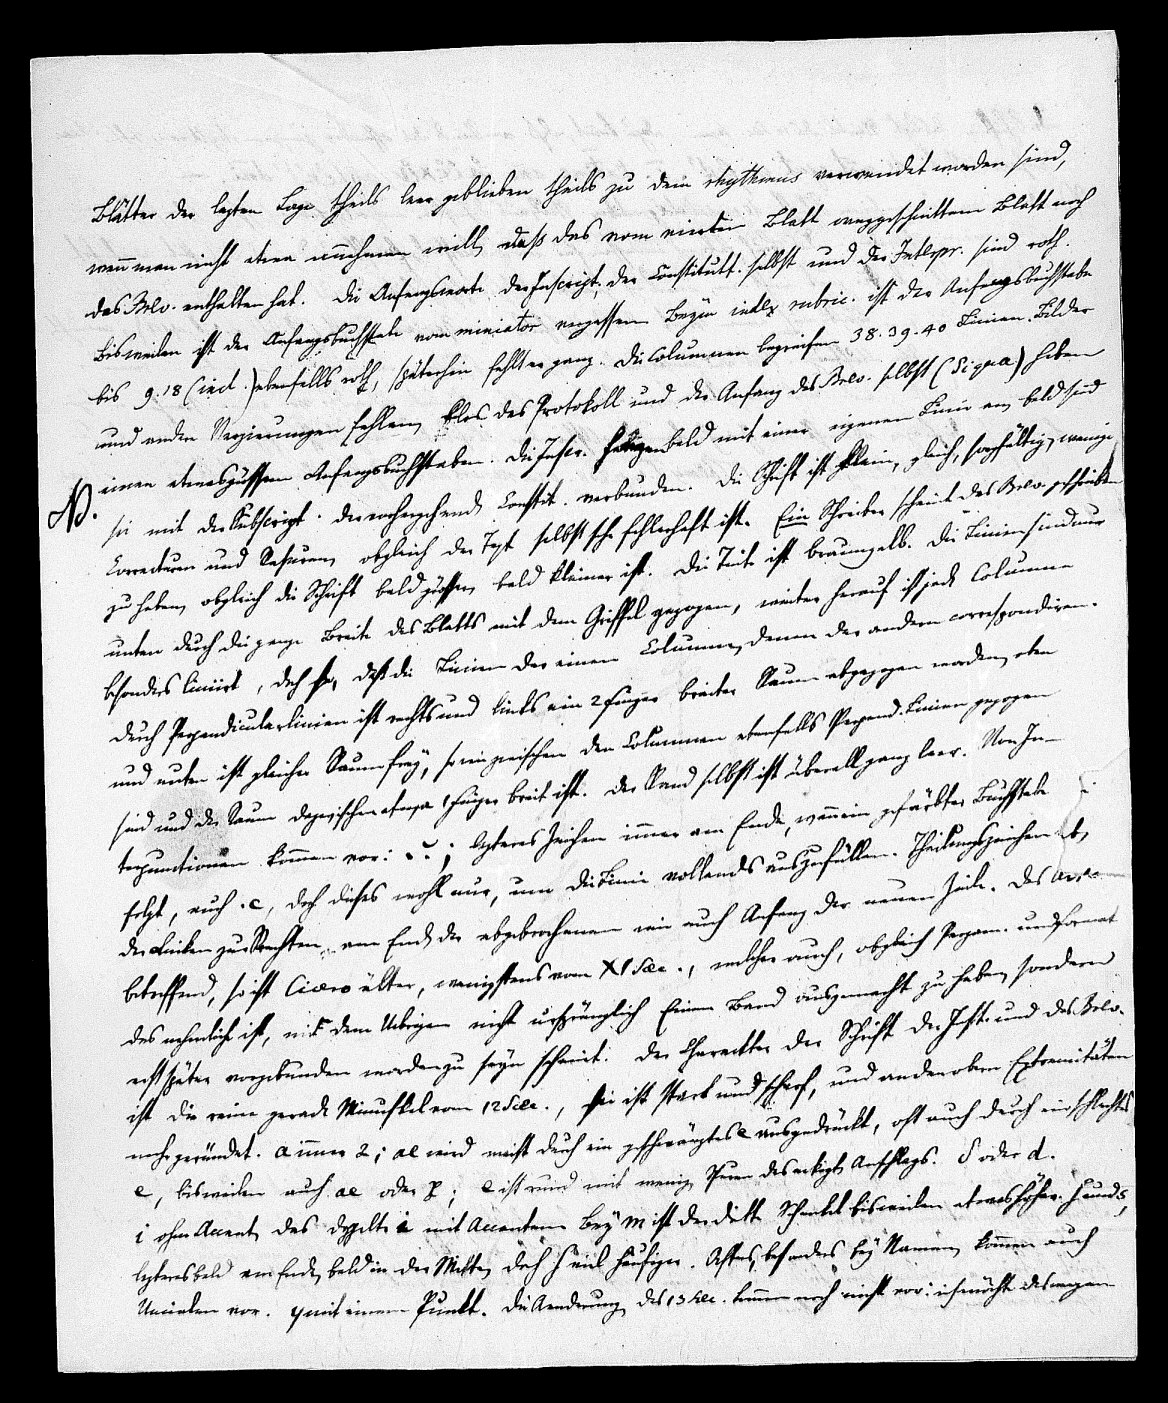 Blätter der letzten Lage theils leer geblieben theils zu dem rhythmus verwendet worden sind,
wenn man nicht etwa annehmen will, daß das vom vierten Blatt weggeschnittene Blatt noch
das Brev. enthalten hat. Die Anfangsworte der Inscript., der Constitutt. selbst und der Interpr. sind roth.
Bisweilen ist der Anfangsbuchstabe vom miniator vergessen. Beym index rubric. ist der Anfangsbuchstabe
bis 9.18 (incl.) ebenfalls roth, späterhin fehlt er ganz. Die Columnen begreifen 38. 39. 40 Linien. Bilder
und andre Verzierungen fehlen, blos das Protokoll und der Anfang des Brev. selbst (Signa) haben
einen etwas größern Anfangsbuchstaben. Die Inscr. fangen bald mit einer eigenen Linie an, bald sind
N. sie mit der Subscript. der vorhergehenden Constit. verbunden. Die Schrift ist klein, gleich, sorgfältig, wenige
Correcturen und Rasuren, obgleich der Text selbst sehr fehlerhaft ist. Ein Schreiber scheint das Brev. geschrieben
zu haben, obgleich die Schrift bald größer, bald kleiner ist. Die Tinte ist braungelb. Die Linien sind nur
unten durch die ganze Breite des Blatts mit dem Griffel gezogen, weiter herauf ist jede Columne
besonders liniirt, doch so, daß die Linien der einen Columne, denen der andern correspondiren.
Durch Perpendicularlinien ist rechts und links ein 2 finger breiter Raum abgezogen worden, oben
und unten ist gleicher Raum frey, so wie zwischen den Columnen ebenfalls Perpend. Linien gezogen
sind und der Raum dazwischen etwa 1 finger breit ist. Der Rand selbst ist überall ganz leer. Von In-
terpunctionen kommen vor: . ; letzteres Zeichen immer am Ende, wenn ein gefärbter Buchstabe
folgt, auch .c, doch dieses wohl nur, um die Linie vollends auszufüllen. Theilungszeichen
der Linken zur Rechten, am Ende der abgebrochenen wie auch Anfang der neuen Zeile. Das Alter
betreffend, so ist Cicero älter, wenigstens vom XI Saec., welcher auch, obgleich Pergam. und Format
das nehmliche ist, mit dem Uebrigen nicht ursprünglich Einen Band ausgemacht zu haben, sondern
erst später vorgebunden worden zu seyn scheint. Der Charakter der Schrift der Inst. und des Brev.
ist die reine gerade Minuskel vom 12 Saec., sie ist stark und scharf, und an den obern Extremitäten
mehr gerundet. a immer 2; ae wird meist durch ein geschwänztes e ausgedrückt, oft auch durch ein schlechtes
e, bisweilen auch ae oder ę; e ist rund mit wenig Spuren des eckigten Anschlags. δ oder d.
i ohne Accent, das doppelte ii mit Accenten. Bey m ist der dritte Schenkel bisweilen etwas höher. ſ und s,
letzteres bald am Ende, bald in der Mitte, doch ſ viel häufiger. Oefters, besonders bey Namen, kommen auch
Uncialen vor. y mit einem Punkt. Die Aenderung des 13 Sec. kommen noch nicht vor: ich möchte deswegen